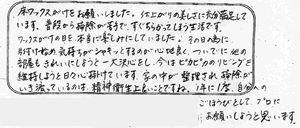 床ワックスがけをお願いしました。仕上がりの美しさに充分満足して
います。普段から掃除が苦手で、すぐちらかってしまう生活です。
ワックスがけの日を本当に楽しみにしていました。その日の為に
片付け始め、気持ちがシャキッとするのが心地良く、ついでに他の
部屋もきれいにしようと一大決心をし、今はピカピカのリビングを
維持しようと日々心掛けています。家の中が整理され、掃除が
いき渡っているのは、精神衛生上良いことですね。1年に1度、自分への
ごほうびとして、プロに
お願いしようと思います。